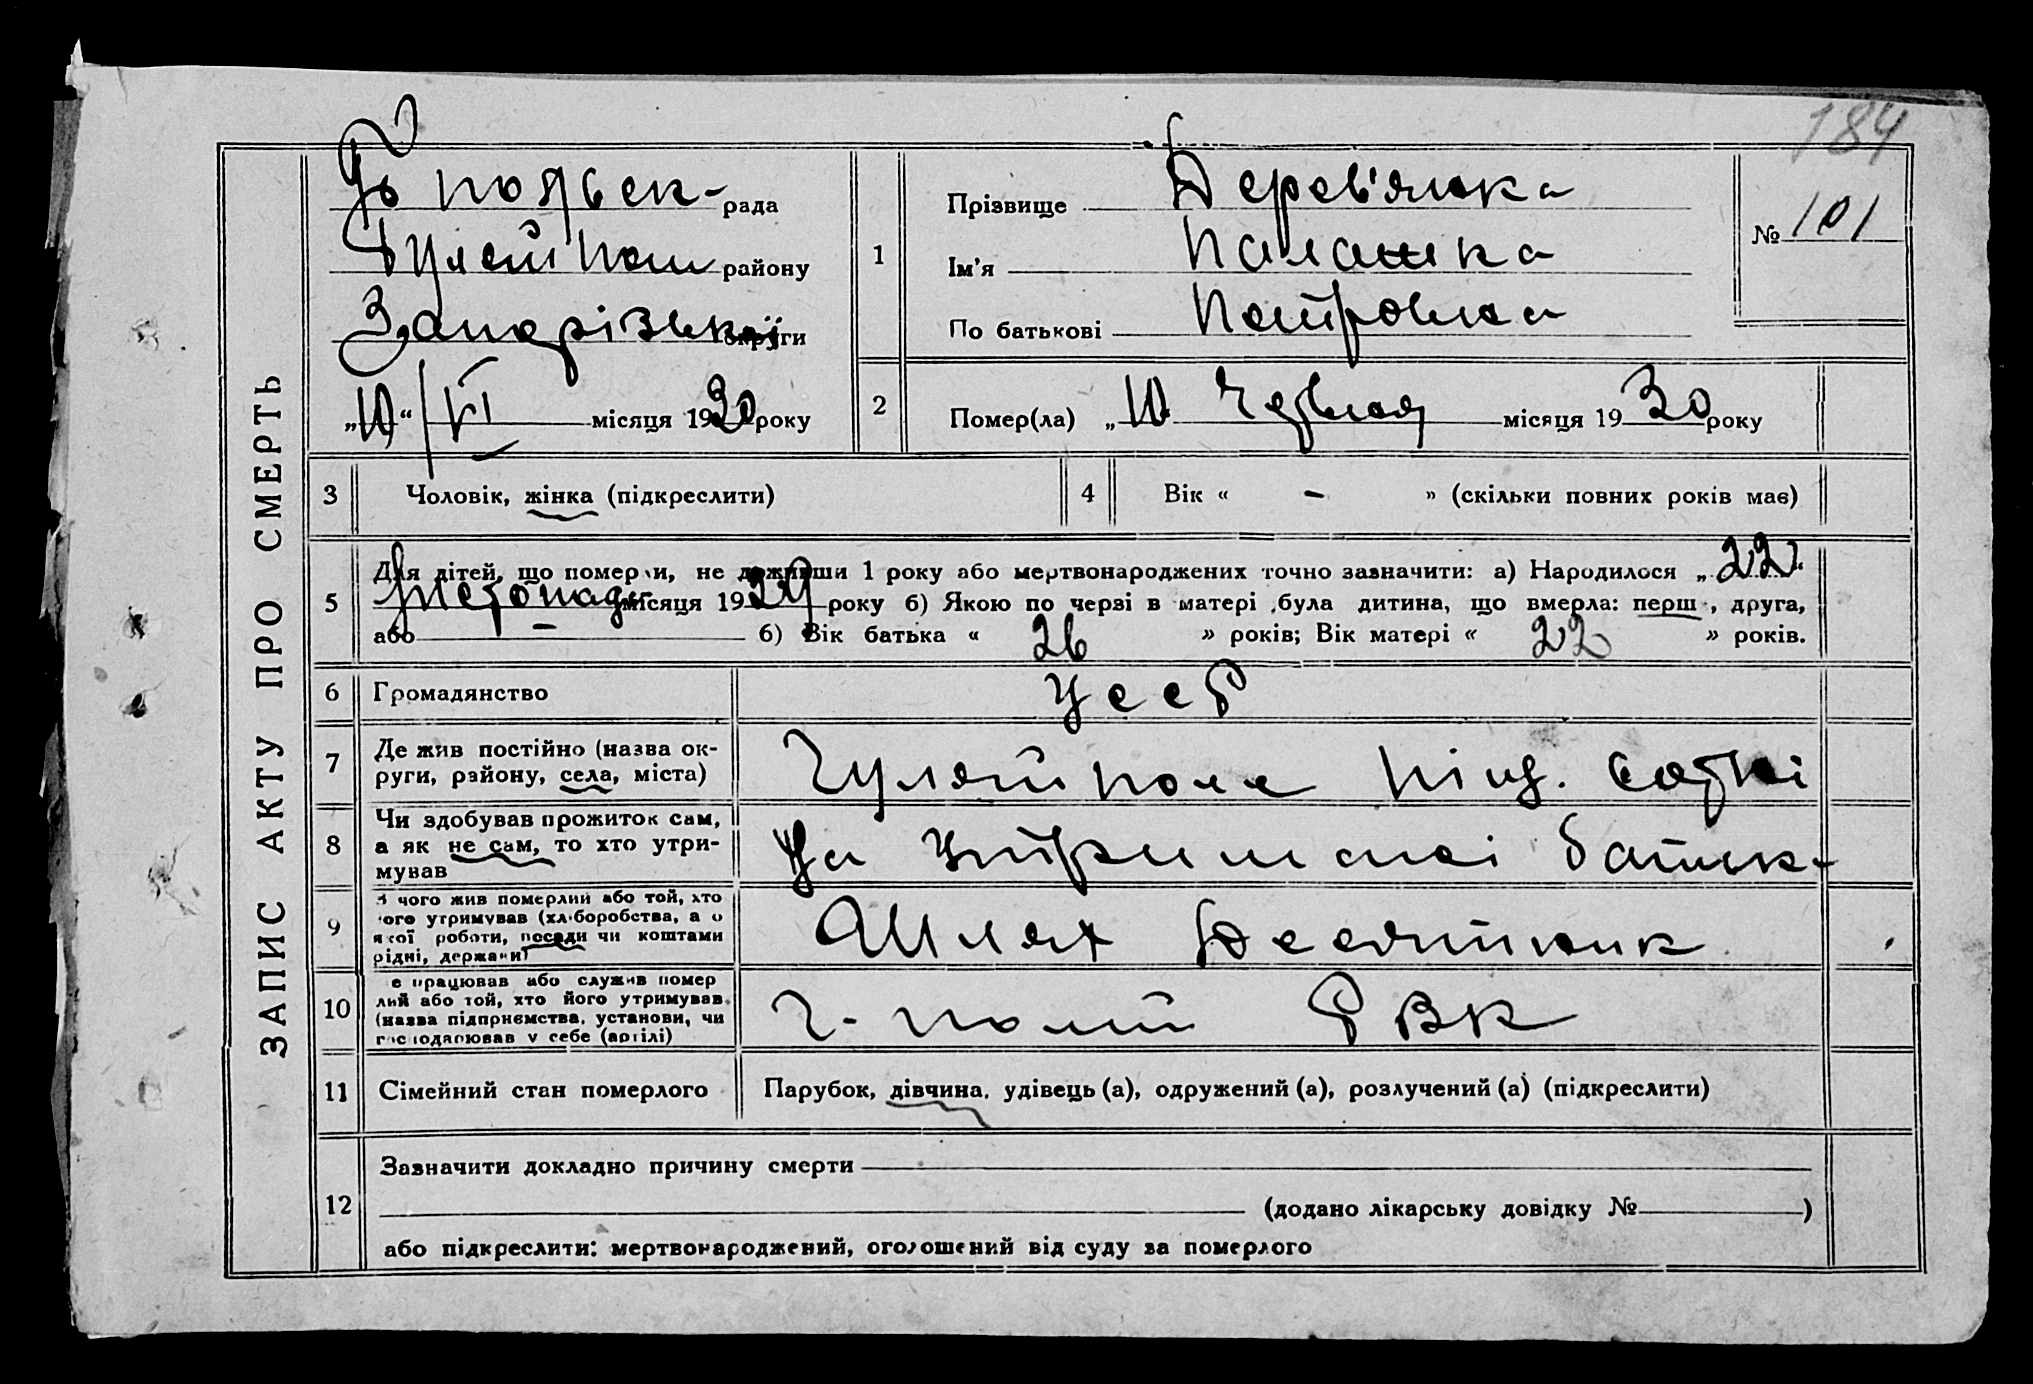 184
Г. польск- рада
Гуляйпол району
Запорізької округи
„10“ VI місяця 1930 року
ЗАПИС АКТУ ПРО СМЕРТЬ
№ 101
1 Прізвище Дерев'янка
Ім'я Палашка
По батькові Петровна
2 Помер(ла) „10 Червня місяця 1930 року
3 Чоловік, жінка (підкреслити)
4 Вік « - » (скільки повних років має)
5 Для дітей, що померли, не доживши 1 року або мертвонароджених точно зазначити: а) Народилося „22“
Листопада місяця 1929 року б) Якою по черзі в матері була дитина, що вмерла: перша, друга,
або - б) Вік батька « 26 » років; Вік матері « 22 » років.
6 Громадянство УССР
7 Де жив постійно (назва ок-
руги, району, села, міста) Гуляйполе сотні
8 Чи здобував прожиток сам,
а як не сам, то хто утри-
мував На утриманні батьк-
9 З чого жив померлий або той, хто
його утримував (хліборобства, а о
якої роботи, посади чи коштами
рідні, держави) Шлях Десятник
10 Де працював або служив помер
лий або той, хто його утримував.
(назва підприємства, установи, чи
господарював у себе (артілі) Г-полий РВК
11 Сімейний стан померлого Парубок, дівчина, удівець (а), одружений (а), розлучений (а) (підкреслити)
12 Зазначити докладно причину смерти
(додано лікарську довідку № )
або підкреслити: мертвонароджений, оголошений від суду за померлого